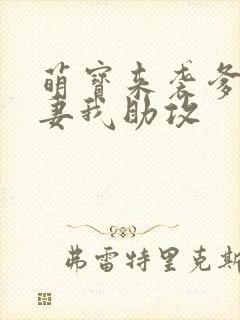 萌宝来袭爹
妻我助攻
弗雷特里克斯